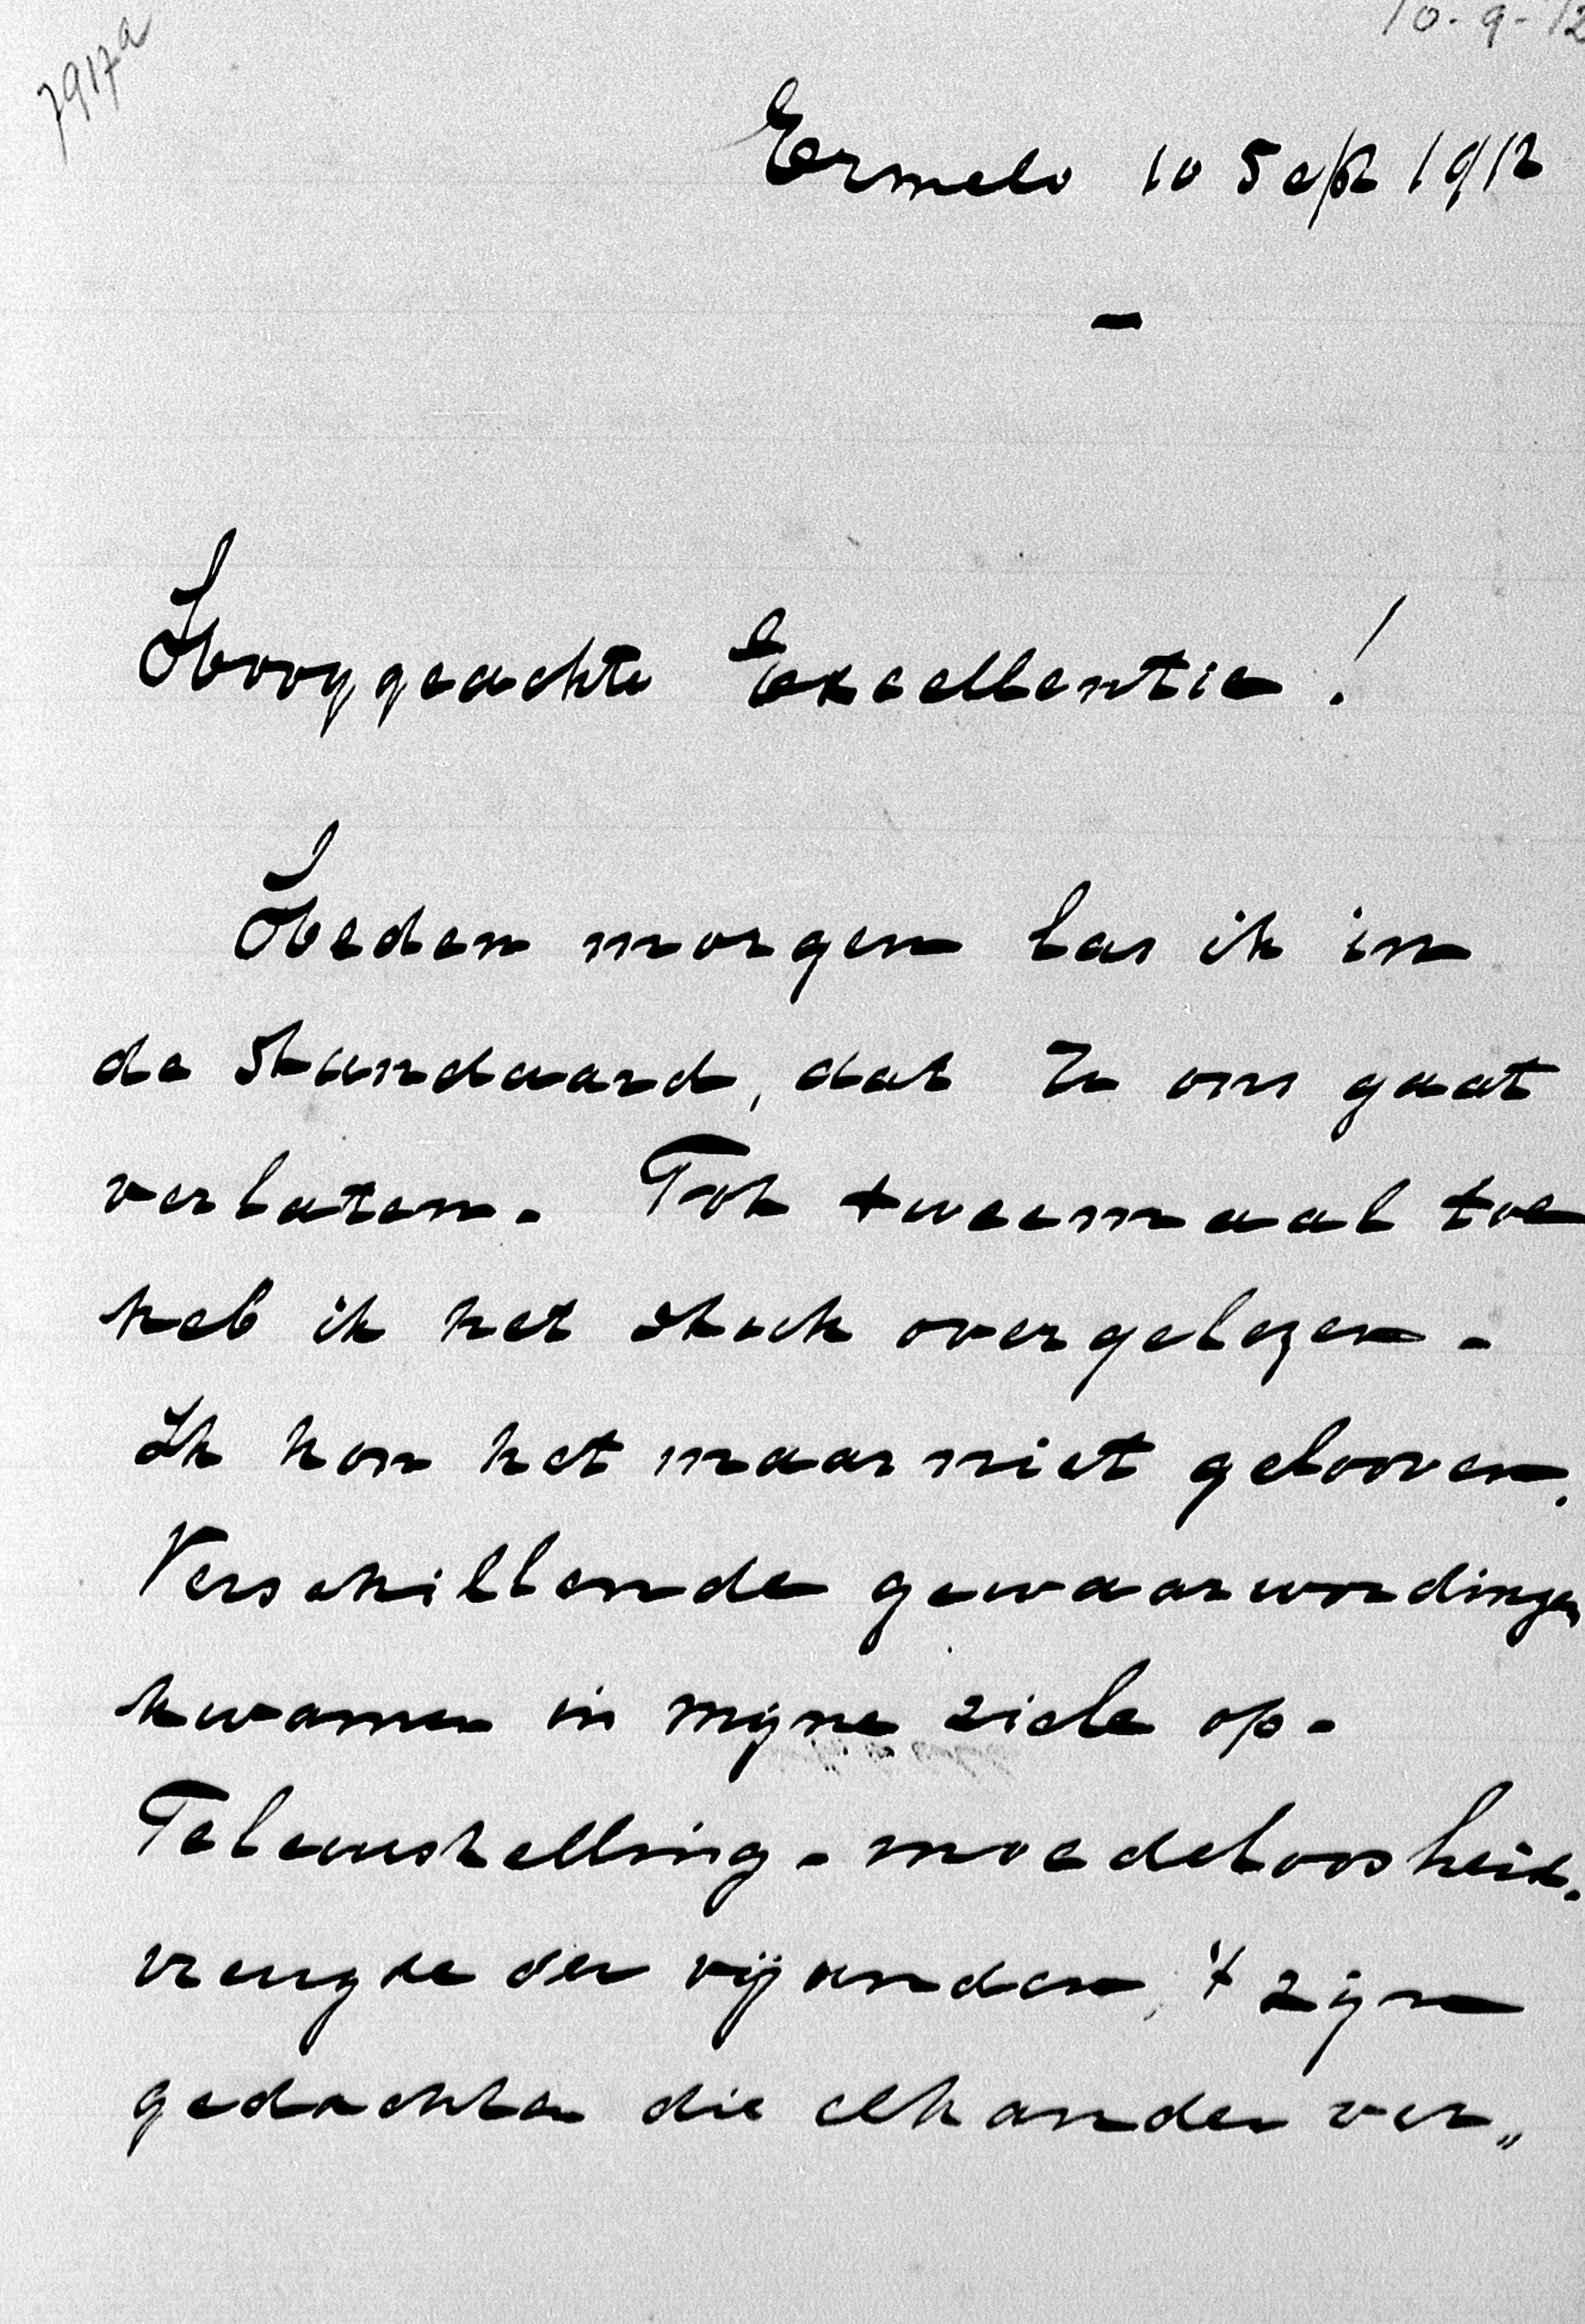 7917a
10-9-12
Ermelo 10 Sept 1912
Hooggeachte Excellentie!
Heden morgen las ik in
de Standaard, dat U ons gaat
verlaten. Tot tweemaal toe
heb ik het stuk overgelezen.
Ik kon het maar niet gelooven.
Verschillende gewaarwordingen
kwamen in mijne ziele op.
Teleurstelling - moedeloosheid.
vreugde der vijanden, 't zijn
gedachten die elkander ver„